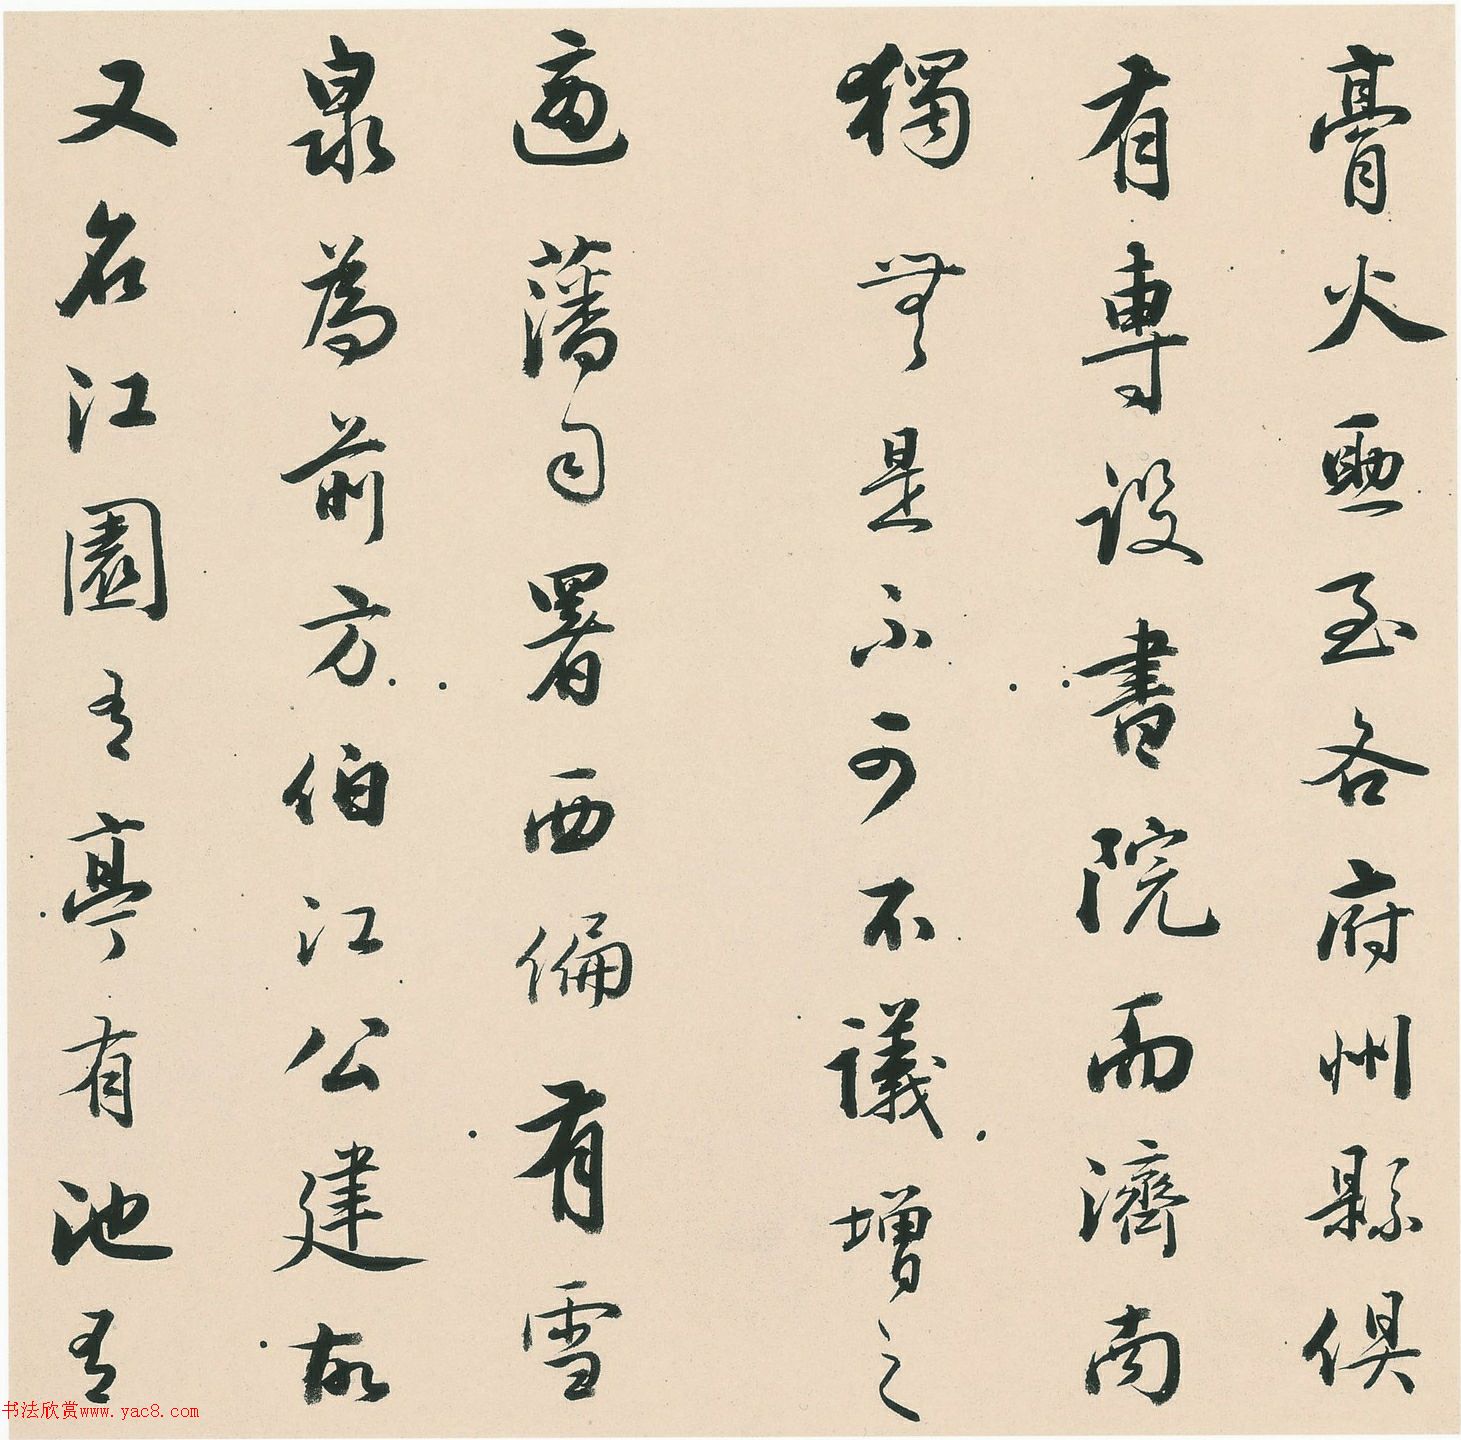 膏火亟至各府州縣俱
有專設書院而濟南
獨無是不可不議增之
適藩司署西偏有雪
泉為前方伯江公建故
又名江園有亭有池有
书法欣赏www.yac8.com